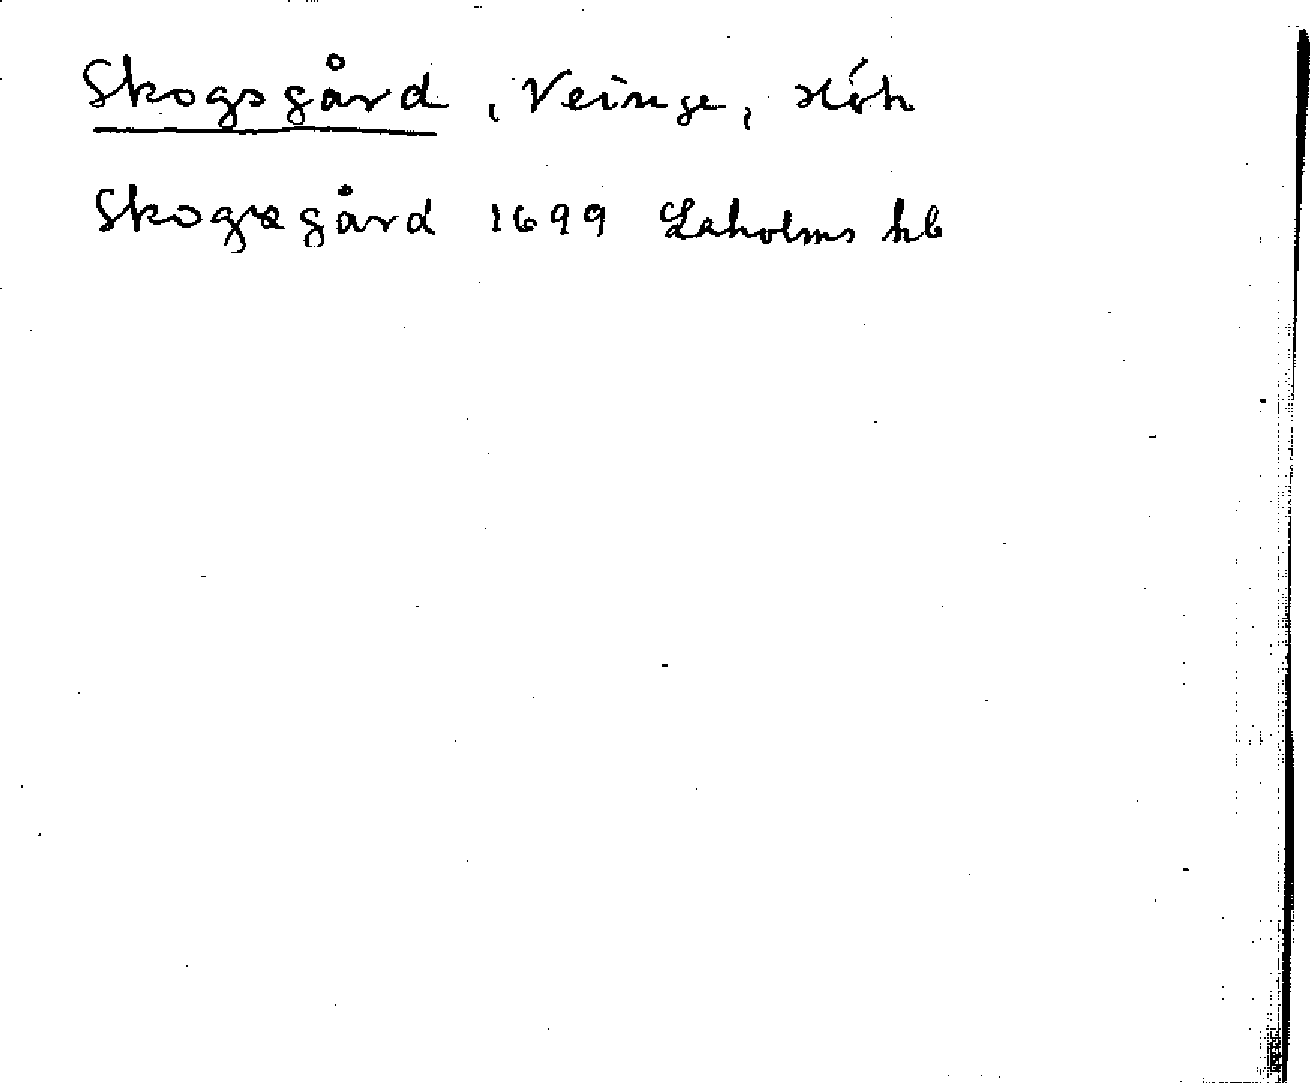 Skogsgård, Veinge,
Skogzgård 1699 Laholms hb